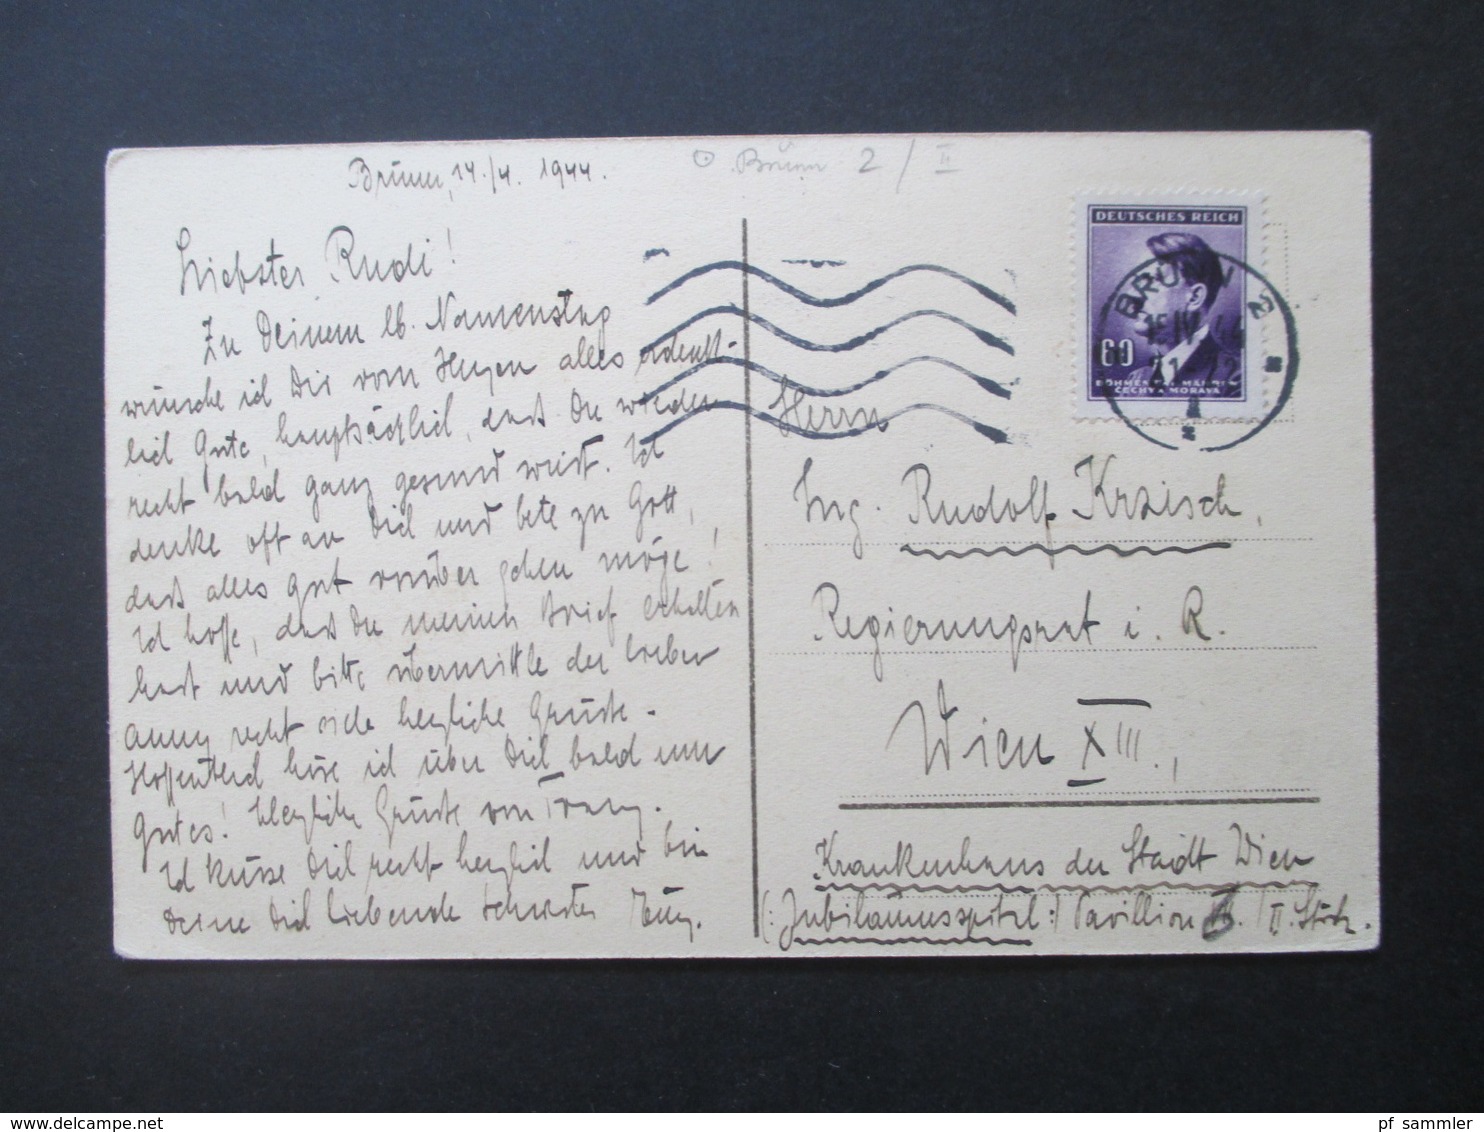 Brünn, 14./4. 1944.
Brünn 2 / II
Liebster Rudi!
Zu Deinem lb. Namenstag
wünsche ich Dir vom Herzen alles erdenk-
lich Gute, hauptsächlich, dass Du wieder
recht bald ganz gesund wirst. Ich
denke oft an Dich und bete zu Gott,
dass alles gut vorüber gehen möge!
Ich hoffe, dass Du meinen Brief erhalten
hast und bitte übermittle der lieben
Anny recht viele herzliche Grüsse.
Hoffentlich höre ich über Dich bald nur
Gutes! Herzliche Grüsse von Franz.
Ich küsse Dich recht herzlich und bin
Deine Dich liebende Schwester
DEUTSCHES REICH
60
BÖHMEN UND MÄHREN
ČECHY A MORAVA
BRÜNN 2
15 IV 44
11-12
Herrn
Ing. Rudolf Krzisch,
Regierungsrat i. R.
Wien XIII.,
Krankenhaus der Stadt Wien
(: Jubiläumsspital :) Pavillion / II. Stock.
www.delcampe.net
pf_sammler